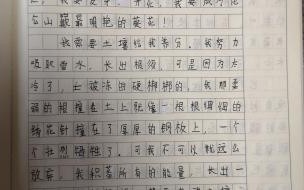 我要发芽，我要成为
高山巅最明艳的葵花！
我需要土壤给我养分。我努力
吸取雪水，长出根须，可是因为太
冷了，土被冻的硬梆梆的，我那柔
弱的根撞在土上就像一根根细细的
绣花针撞在了厚厚的钢板上，一个
个壮烈牺牲了。可我不可以就这么
放弃，我积蓄所有的能量，长出一